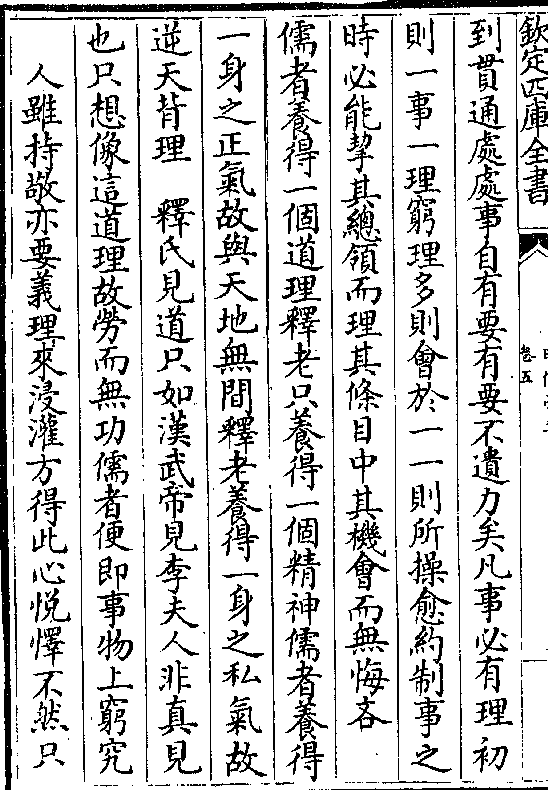 欽定四庫全書
卷五
到貫通處處事自有要有要不遺力矣凡事必有理初
則一事一理窮理多則會於一一則所操愈約制事之
時必能挈其總領而理其條目中其機會而無悔吝
儒者養得一個道理釋老只養得一個精神儒者養得
一身之正氣故與天地無間釋老養得一身之私氣故
逆天背理 釋氏見道只如漢武帝見李夫人非真見
也只想像這道理故勞而無功儒者便即事物上窮究
人雖持敬亦要義理來浸灌方得此心悅懌不然只